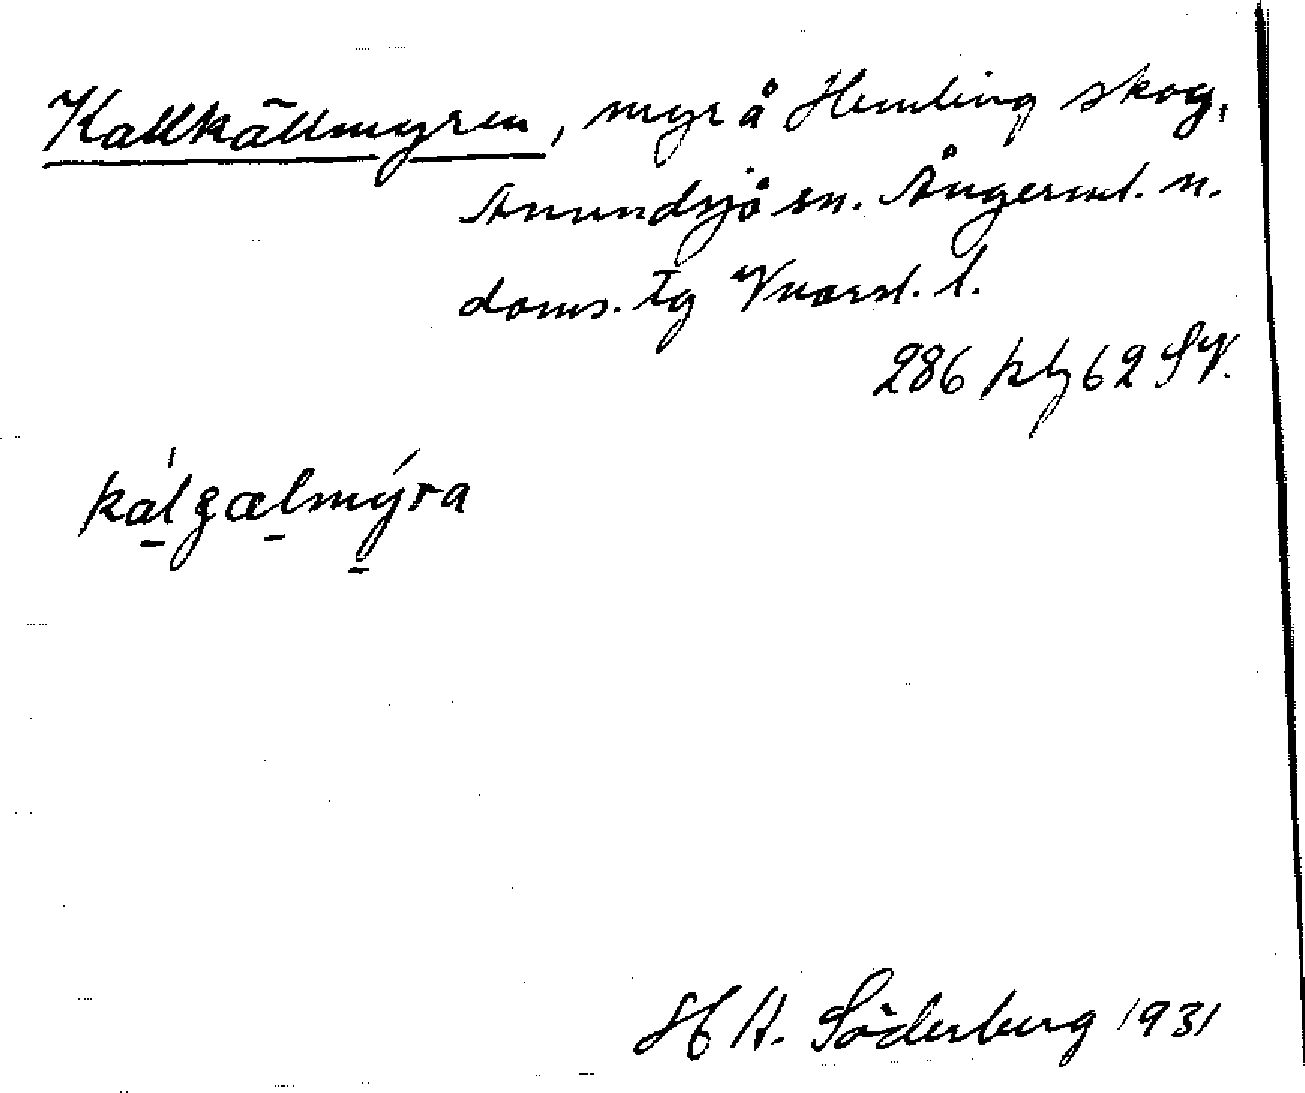 Kallkällmyren, myr å Hemling skog,
Anundsjö sn. Ångerml. n.
doms. tg Vnorrl. l.
286 kbl 62 SV.
kálgælmýra
H A. Söderberg 1931